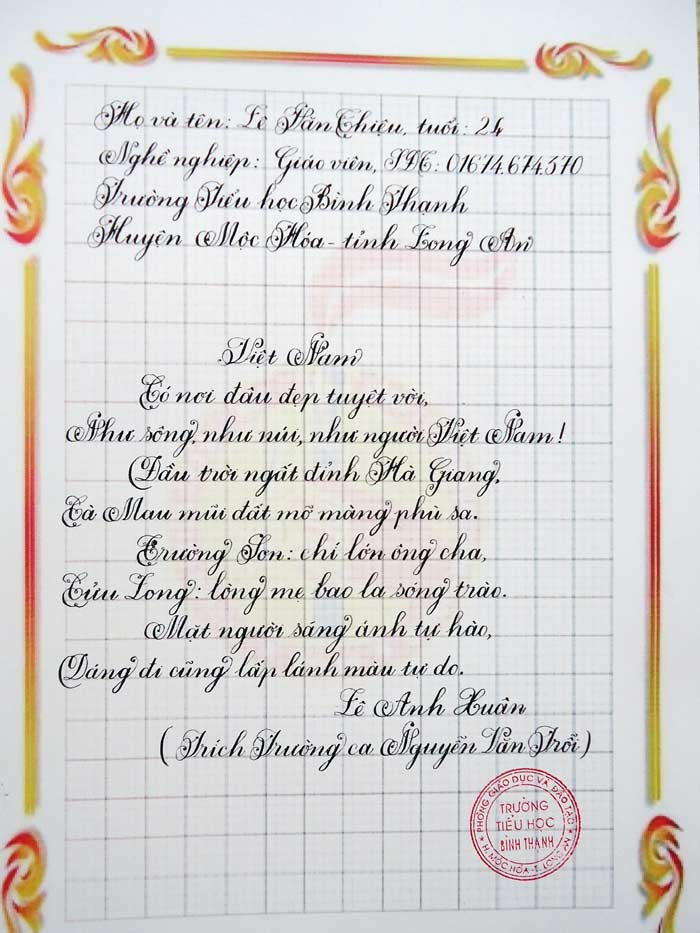 Họ và tên: Lê Văn Thiệu, tuổi: 24
Nghề nghiệp: Giáo viên, SĐT: 01674.674.370
Trường Tiểu học Bình Thạnh
Huyện Mộc Hóa - tỉnh Long An
Việt Nam
Có nơi đâu đẹp tuyệt vời,
Như sông, như núi, như người Việt Nam!
Đầu trời ngất đỉnh Hà Giang,
Cà Mau mũi đất mỡ màng phù sa.
Trường Sơn: chí lớn ông cha,
Cửu Long: lòng mẹ bao la sóng trào.
Mặt người sáng ánh tự hào,
Dáng đi cũng lấp lánh màu tự do.
Lê Anh Xuân
( Trích Trường ca Nguyễn Văn Trỗi )
PHÒNG GIÁO DỤC VÀ ĐÀO TẠO
TRƯỜNG
TIỂU HỌC
BÌNH THẠNH
H. MỘC HÓA - T. LONG AN